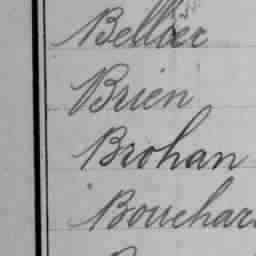 Bellier
Brien
Brohan
Bouchar